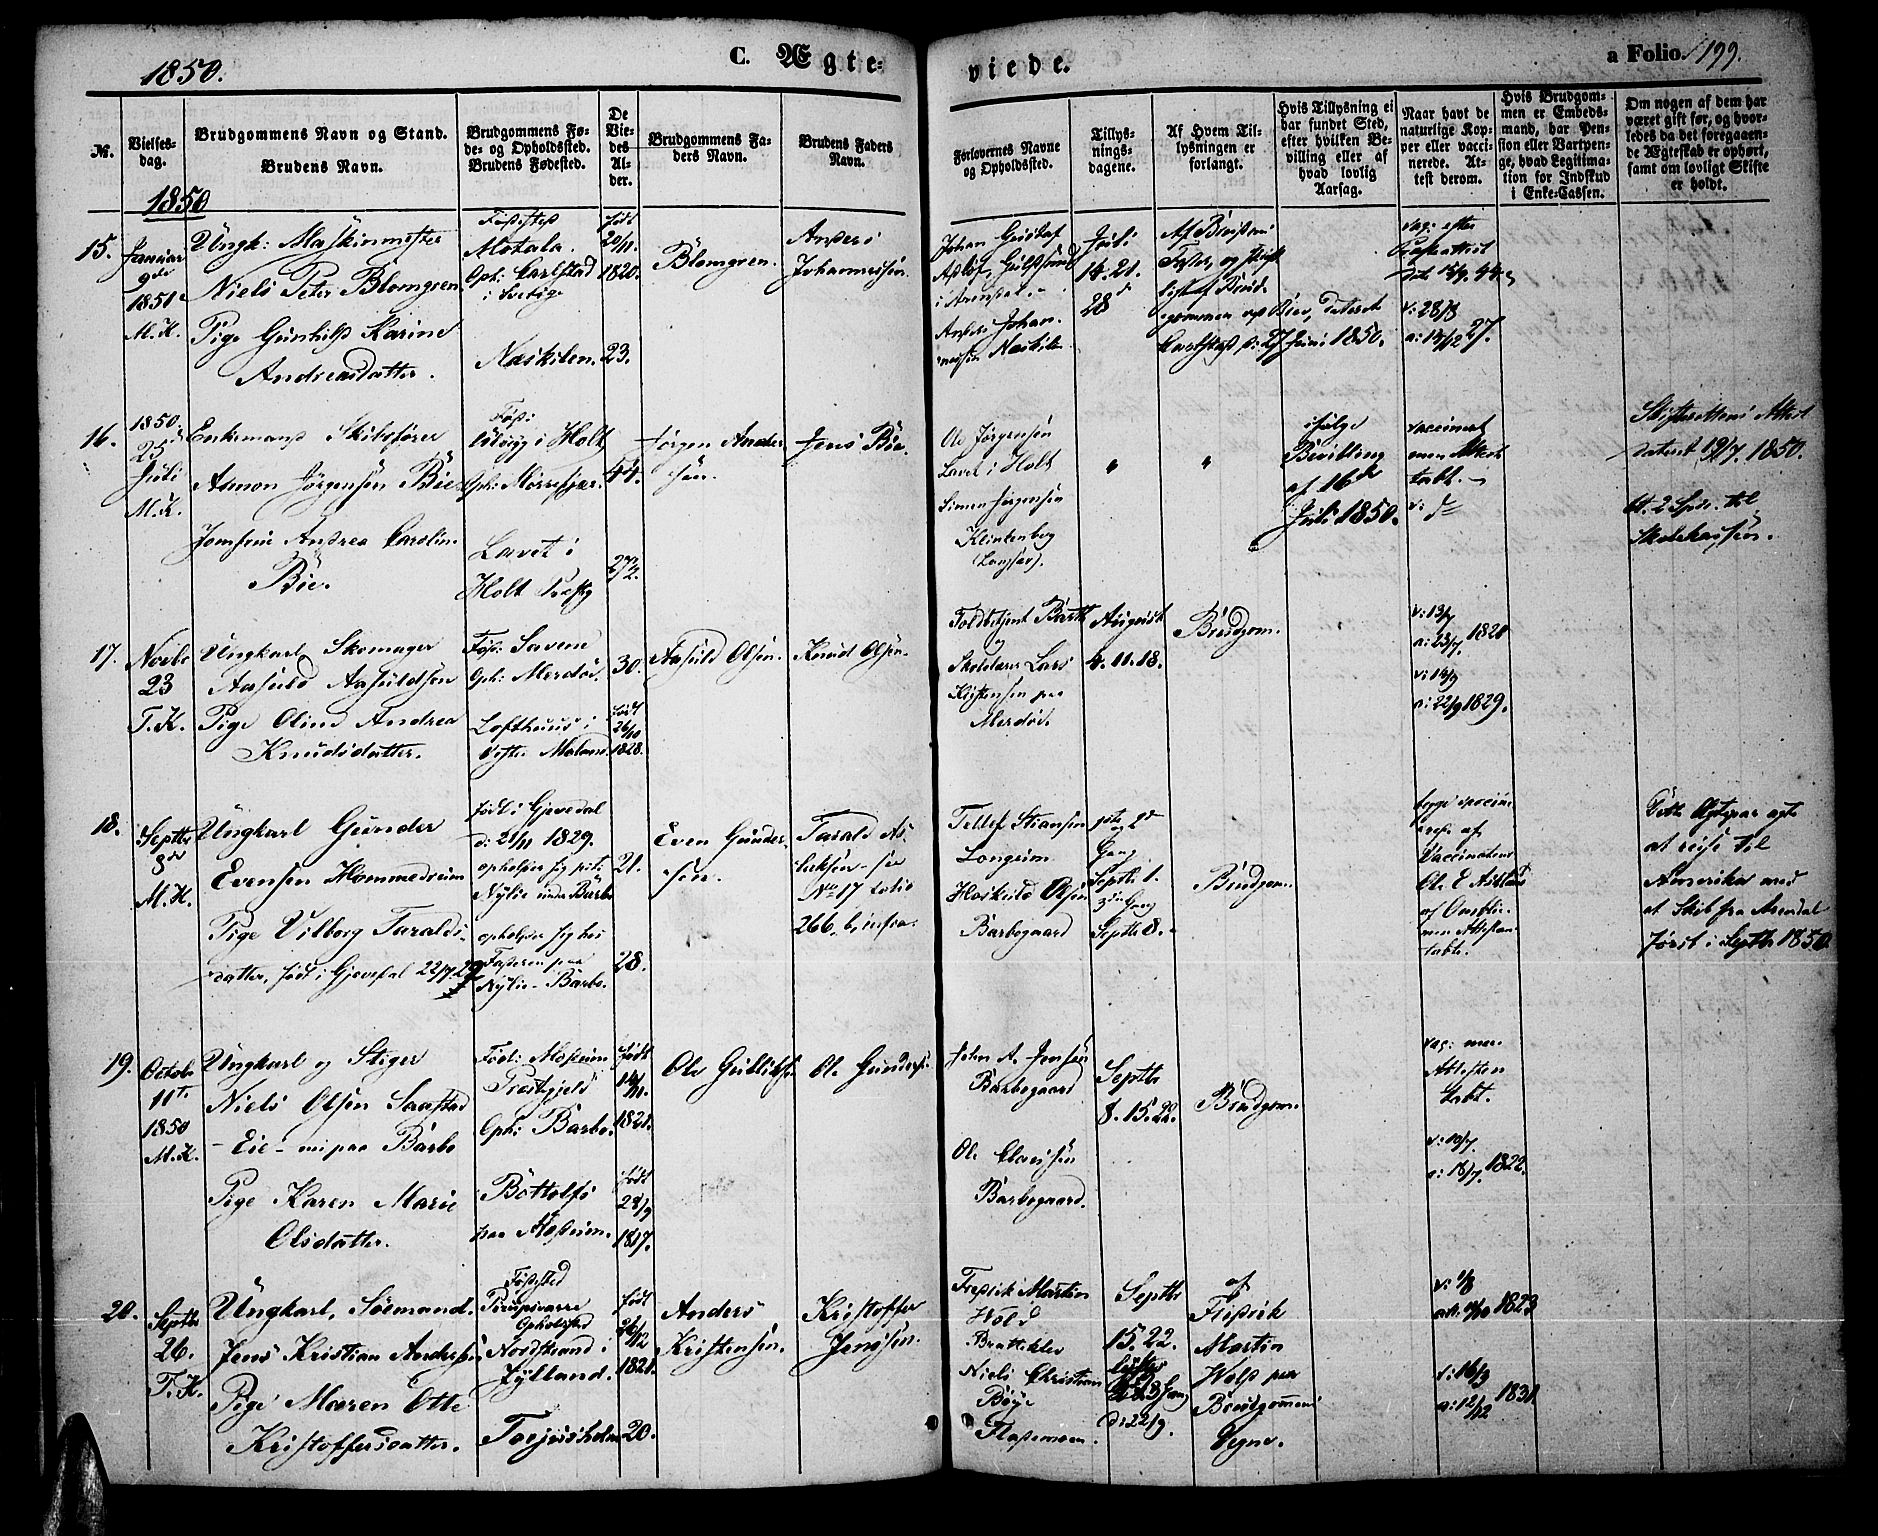 1850.
C. Ægte-
viede.
a Folio 199.
№.
Vielses-
dag.
Brudgommens Navn og Stand.
Brudens Navn.
Brudgommens Fø-
de- og Opholdssted.
Brudens Fødested.
De
Vie-
des
Al-
der.
Brudgommens Fa-
ders Navn.
Brudens Faders
Navn.
Forlovernes Navne
og Opholdssted.
Tillys-
nings-
dagene.
Af Hvem Til-
lysningen er
forlangt.
Hvis Tillysning ei
har fundet Sted,
efter hvilken Be-
villing eller af
hvad lovlig
Aarsag.
Naar havt de
naturlige Kop-
per eller vacci-
nerede. At-
test derom.
Hvis Brudgom-
men er Embeds-
mand, har Pen-
sion eller Vartpen-
ge, hvad Legitima-
tion for Indskud
i Enke-Cassen.
Om nogen af dem har
været gift før, og hvor-
ledes da det foregaaen-
de Ægteskab er ophørt,
samt om lovligt Skifte
er holdt.
1850
15.
Januar
9de
1851
M.K.
Ungk: Maskinmester
Niels Peter Blomgren
Pige Gunhild Karine
Andreasdatter.
Motala.
Oph: Carlstad
i Sverige
Næskilen.
født
20/11
1820.
23.
Blomgren.
Anders
Johannessen.
Johan Gustaf
i Arendal.
Anders Johan-
nessen Næskilen
Juli
14. 21.
28
Carlstad d: 27 Juni 1850.
v: 28/8
a: 14/12 27.
16.
1850.
25
Juli
M.K.
Enkemand Skibsfører
Asmon Jørgensen Bie
Jomfrue Andrea Carolin
Bie.
Fød:
i Holt
Oph:
Lavet i
Holt
54.
27½.
Jørgen Ander
sen.
Jens Bie.
Ole Jørgensen
Lavet i Holt
Simon Jørgensen
Klinkenberg
"
"
ifølge
Bevilling
af 16de
Juli 1850.
vaccineret
men Attest
tabt.
v: do
Skifterettens Attest
dateret 19/7 1850.
bt. 2 Spd. til
Skolekassen.
17.
Novbr
23
T.K.
Ungkarl Skomager
Aasuld Aasuldsen
Pige Oline Andrea
Knudsdatter.
Fød:
Oph: Merdø.
Lofthuus i
Øster Moland
30.
født
26/10
1828.
Aasuld Olsen.
Knud Olsen.
Toldbetjent Barth
og
Skolelærer Lars
Kistensen paa
Merdø.
August
4. 11. 18.
Brudgom.
v: 13/7
a: 23/7 1820
v: 14/9
a: 22/9 1829.
18.
Septbr
8de
M.K.
Ungkarl Gunder
Evensen Hommedrum
Pige Vilborg Taralds-
datter, født i Gjevedal 22/7 22
født i Gjevedal
d: 21/11 1829.
opholder sig pt:
Nylie under Barbo
opholder sig hos
Faderen paa
Nylie Barbo.
21.
28.
Even Gunder-
sen.
Tarald As-
laksen - see
No 17 folio
266. b, infra.
Tellef Stiansen
Longum
Haskild Olsen
Barbogaard
1ste og 2d
Gang
Septbr 1.
3die Gang
Septbr 8.
Brudgom.
begge vaccine-
rede af
Vaccinateur
Ole E Aslak
af Omblie-
men Attesten
tabt.
Dette Ægtepar agte
at reise til
Amerika med
et Skib fra Arendal
først i Septbr 1850.
19.
Octobr
11te
1850
M.K.
Ungkarl og Stiger
Niels Olsen Saastad
- Eie - nu paa Barbo
Pige Karen Marie
Olsdatter.
Fød: Modum
Præstgjeld
Oph: Barbo.
Bottolfs
paa Modum.
født
14/11.
1821.
født
28/9
1817.
Ole Gulliksen
Ole Gunders:
John A. Jensen
Barbogaard
Ole Clausen
Barbogaard.
Septbr
8. 15. 22.
Brudgom.
vac: men
Attesten
tabt.
v: 10/7
a: 18/7 1822.
20.
Septbr
26.
T.K.
Ungkarl, Sømand.
Jens Kristian Andersen
Pige Maren Otte
Kristoffersdatter.
Fødested
Opholdsted
Nordstrand i
Jylland.
Torjusholm
født
26/12
1821.
20.
Anders
Kristensen.
Kristoffer
Jensen.
Fredrik Martin
Wold
Brattekler
Niels Christian
Bøye
Flademoen.
Septbr
15. 22.
d: 22/9.
af
Fredrik
Martin
Wold paa
Brudgommens
Vegne.
v: 1/8
1823
v: 16/9
a: 12/12 1831.